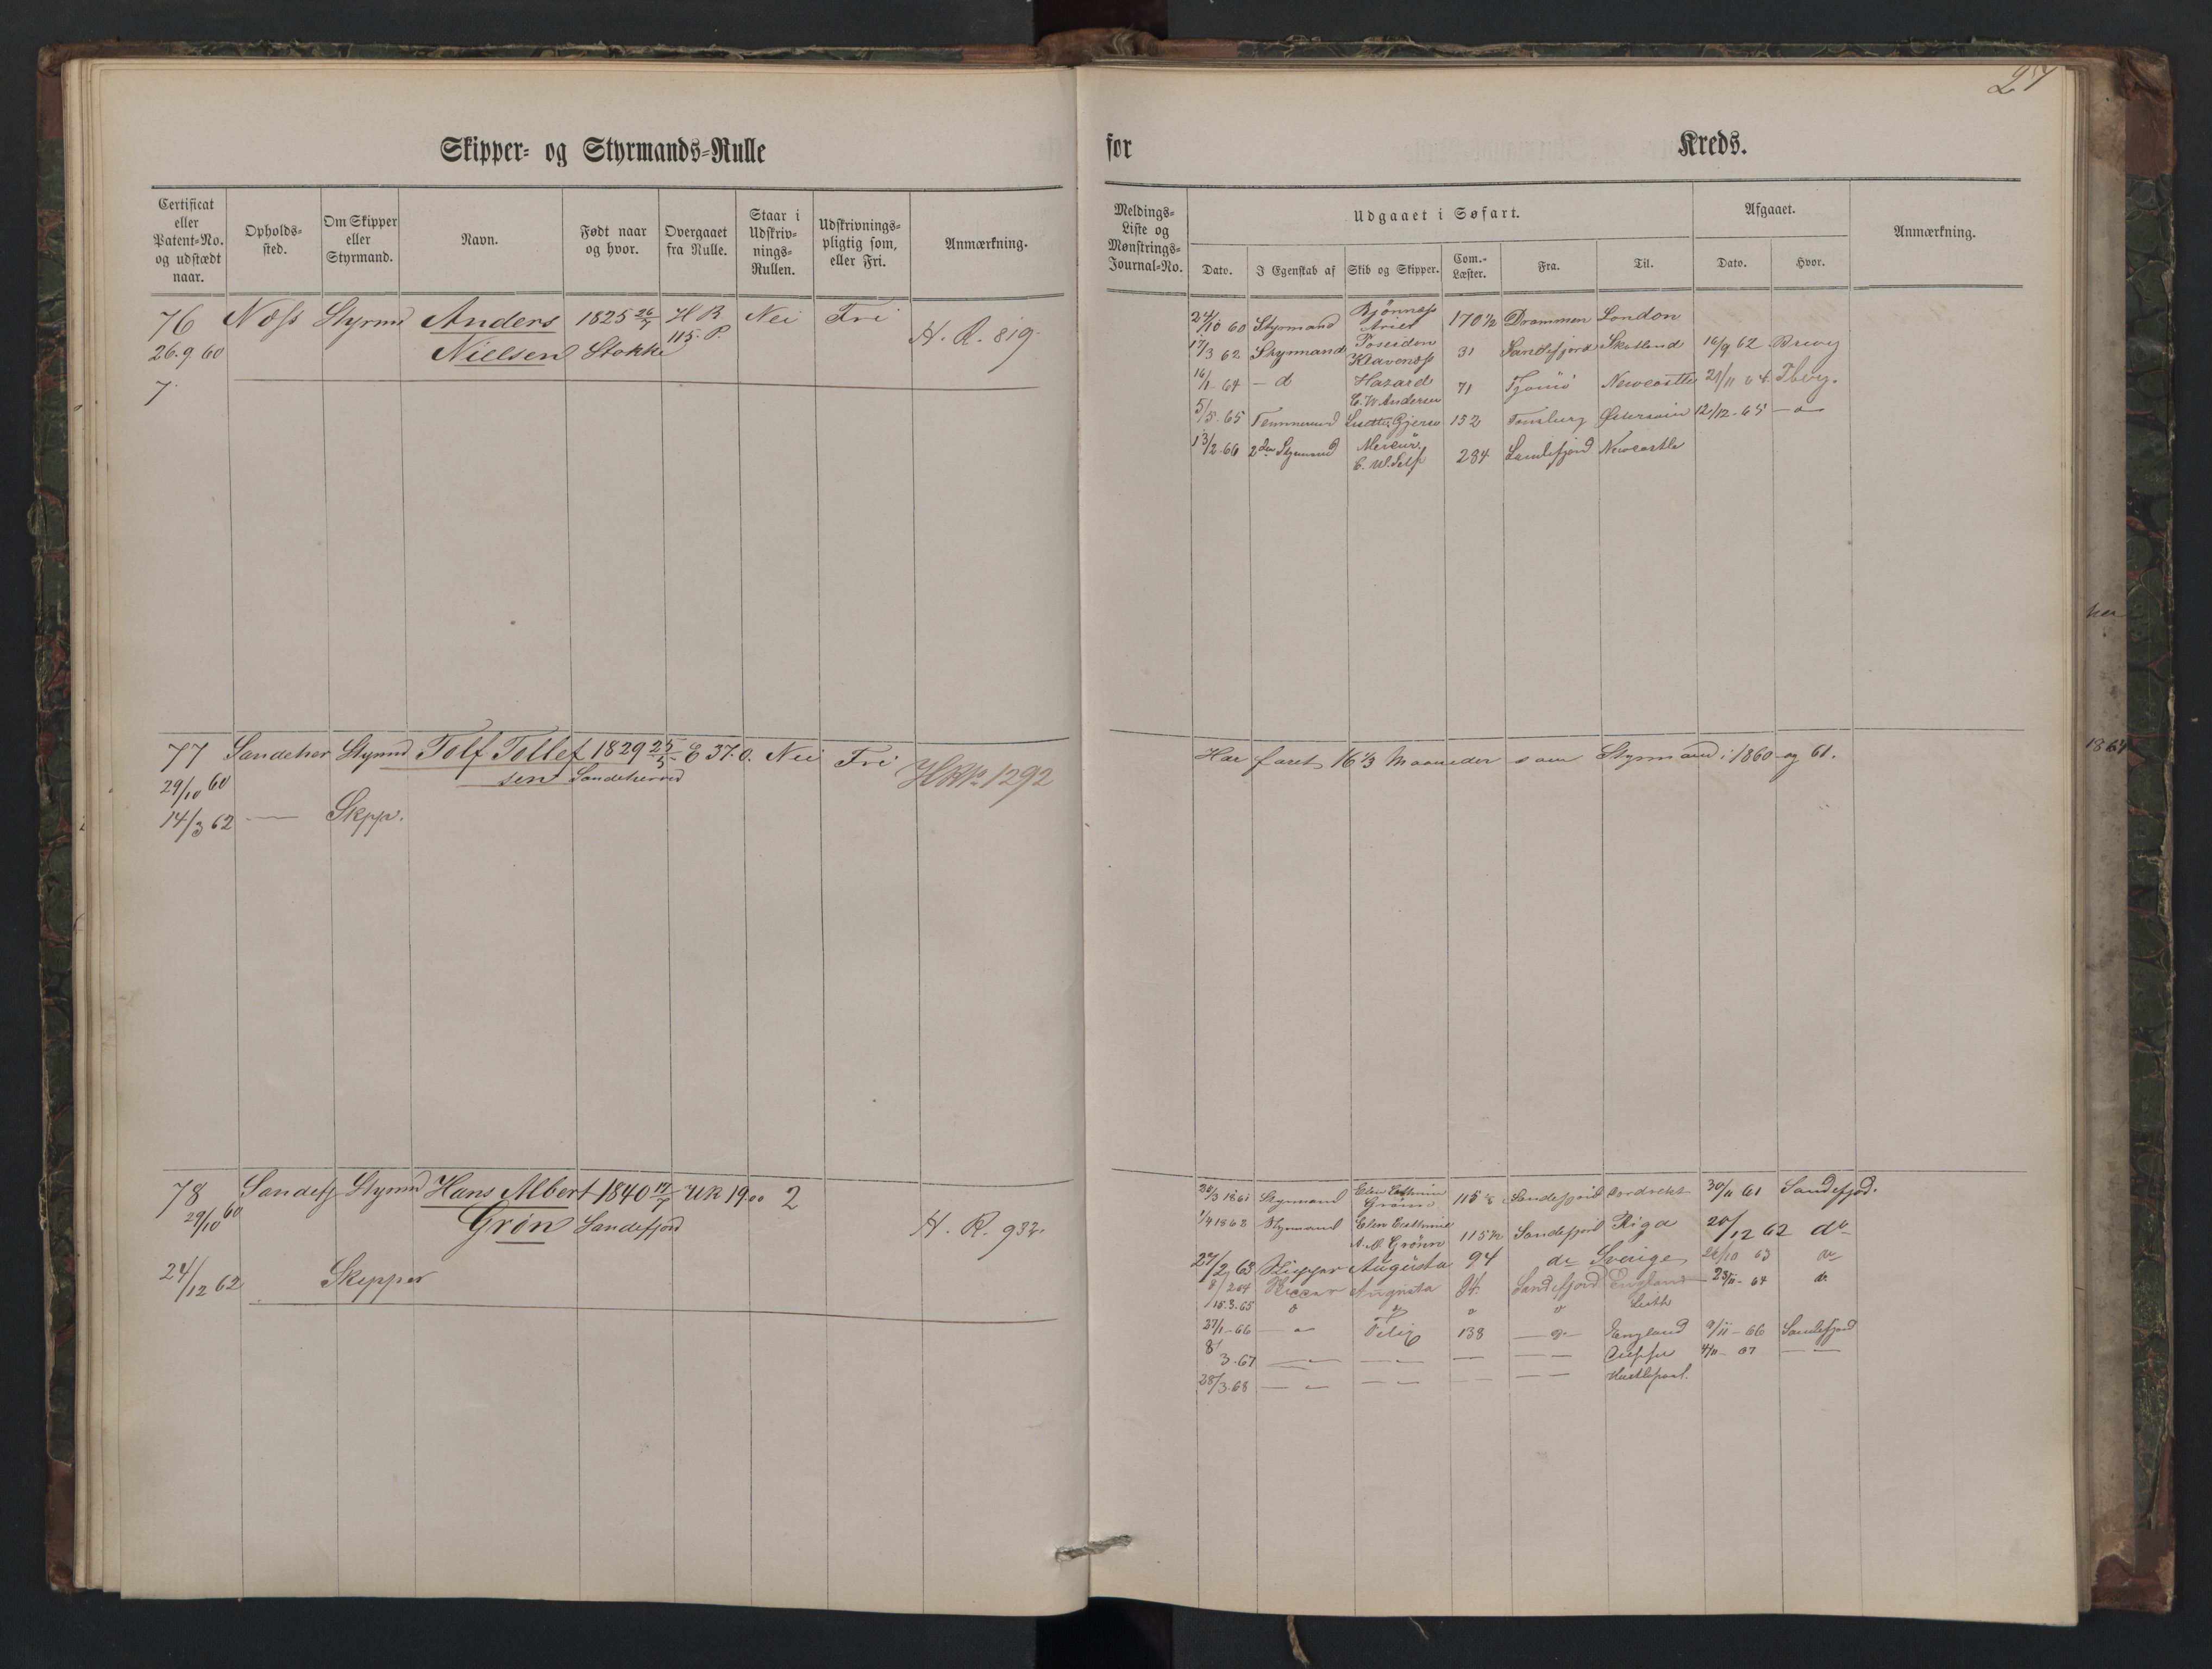 27
Skipper- og Styrmands-Rulle
for Kreds.
Certificat eller Patent-No. og udstædt naar.
Opholds-sted.
Om Skipper eller Styrmand.
Navn.
Født naar og hvor.
Overgaaet fra Rulle.
Staar i Udskriv-nings-Rullen.
Udskrivnings-pligtig som, eller Fri.
Anmærkning.
Meldings-Liste og Mønstrings-Journal-No.
Udgaaet i Søfart.
Dato.
I Egenskab af
Skib og Skipper.
Com.-Læster.
Fra.
Til.
Afgaaet.
Dato.
Hvor.
Anmærkning.
76 Næss Styrmd Anders 1825 26/7 H R Nei Fri H. R. 819
26.9 60 Nielsen Stokke 115. P.
7.
24/10 60 Styrmand Bjønness 170 1/2 Drammen London
17/3 62 Styrmand Poseidon Klavenæss 31 Sandefjord Skotland 16/9 62 Brevig
16/1 64 - d Hazard C. W. Andersen 71 Tjømö Newcastle 21/11 64 Tberg.
5/5. 65 Tømmermd 152 Tønsberg Østersøen 12/12-65 - d
13/2. 66 2den Styrmand Mercur 284 Sandefjord Newcastle
77 Sandeher Styrmd Tolf Tollef 1829 25/5 E 37. O. Nei Fri HR No 1292
29/10 60 sen Sandeherred
14/3 62 — Skpp.
Har faret 16 1/3 Maaneder som Styrmand i 1860 og 61.
78 Sandefj Styrmd Hans Albert 1840 17/7 UR 19.00 2
29/10 60 Grøn Sandefjord H. R. 932.
24/12 62 Skipper
20/3 1861 Styrmand Elen Cathrine Grønn Sandefjord Dordrekt 30/11 61 Sandefjord.
1/4 1862 Styrmand Elen Cathrine A. M. Grönn 115 1/2 Sandefjord Riga 20/12 62 do
27/2 63 Skipper Augusta 94 do Sverige 26/10 63 do
8/2 64 Skipper Augusta 94 Sandefjord England 23/11-64 do
15.3.65 Leith
27/1-66 138 England 9/11-66 Sandefjord
8/3.67 Dieppe 4/11-67
28/3.68 Hartlepool.
1864